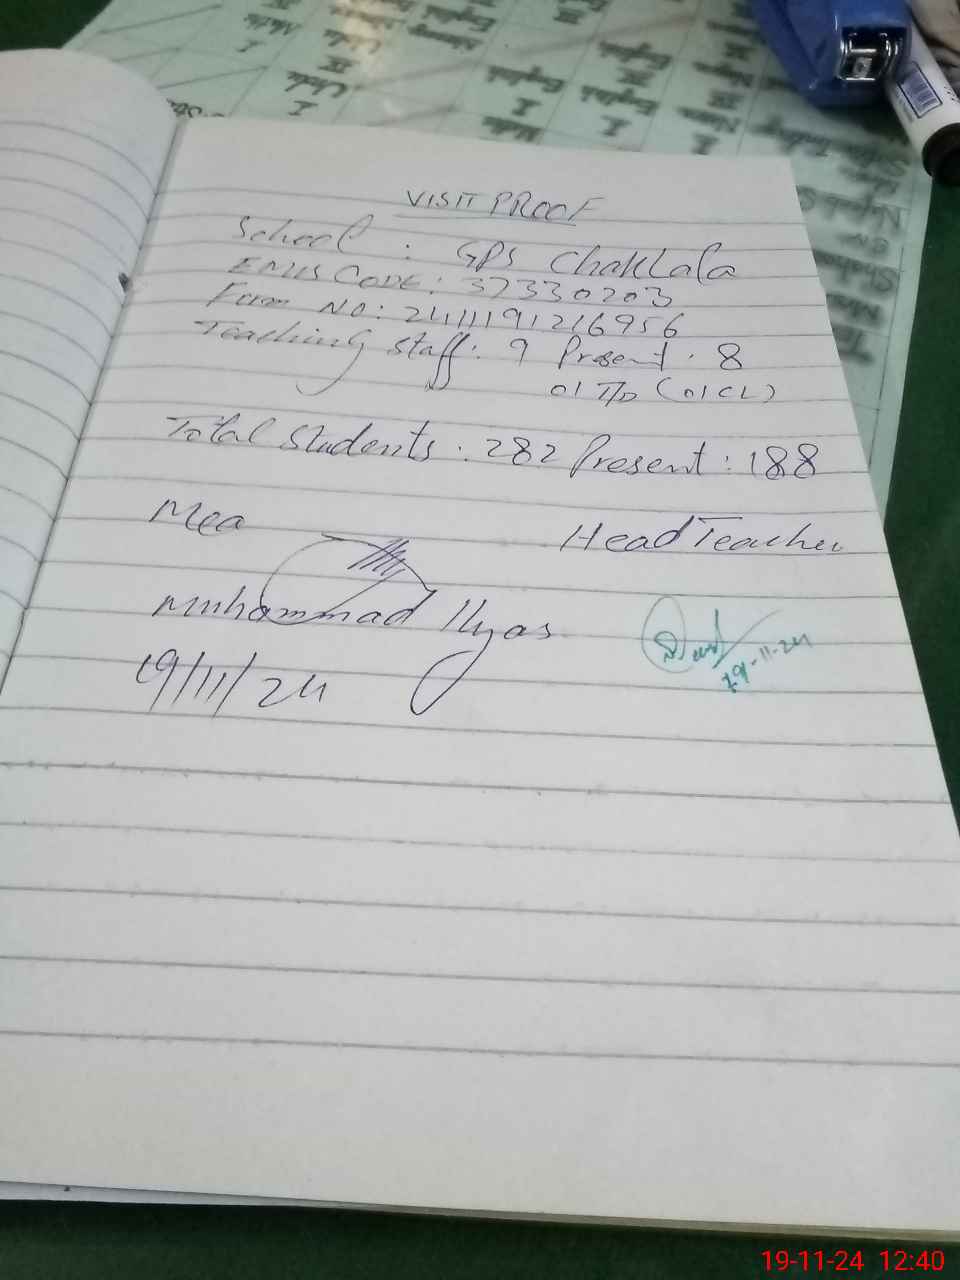 VISIT PROOF
School : GPS Chaklala
EMIS CODE : 37330203
Form NO: 2411191216956
Teaching staff : 9 Present : 8
01 T/D (01 CL)
Total Students : 282 Present : 188
Mea
Head Teacher
Muhammad Ilyas
19/11/24
19-11-24
19-11-24 12:40